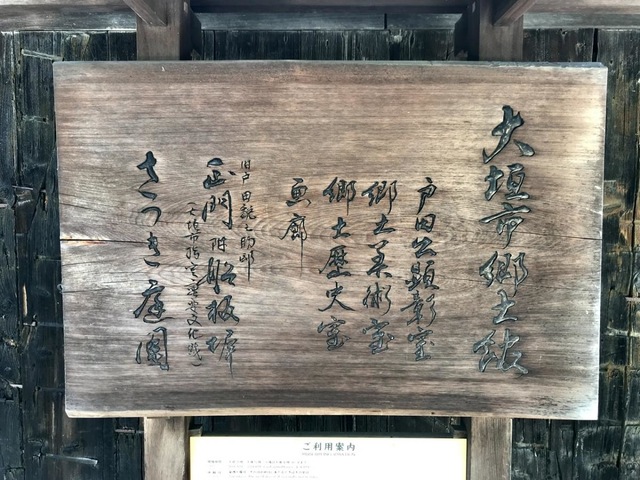 大垣市郷土館
戸田公顕彰室
郷土美術室
郷土歴史室
画廊
旧戸田鋭之助邸
正門附船板塀
(大垣市指定重要文化財)
さつき庭園
ご利用案内